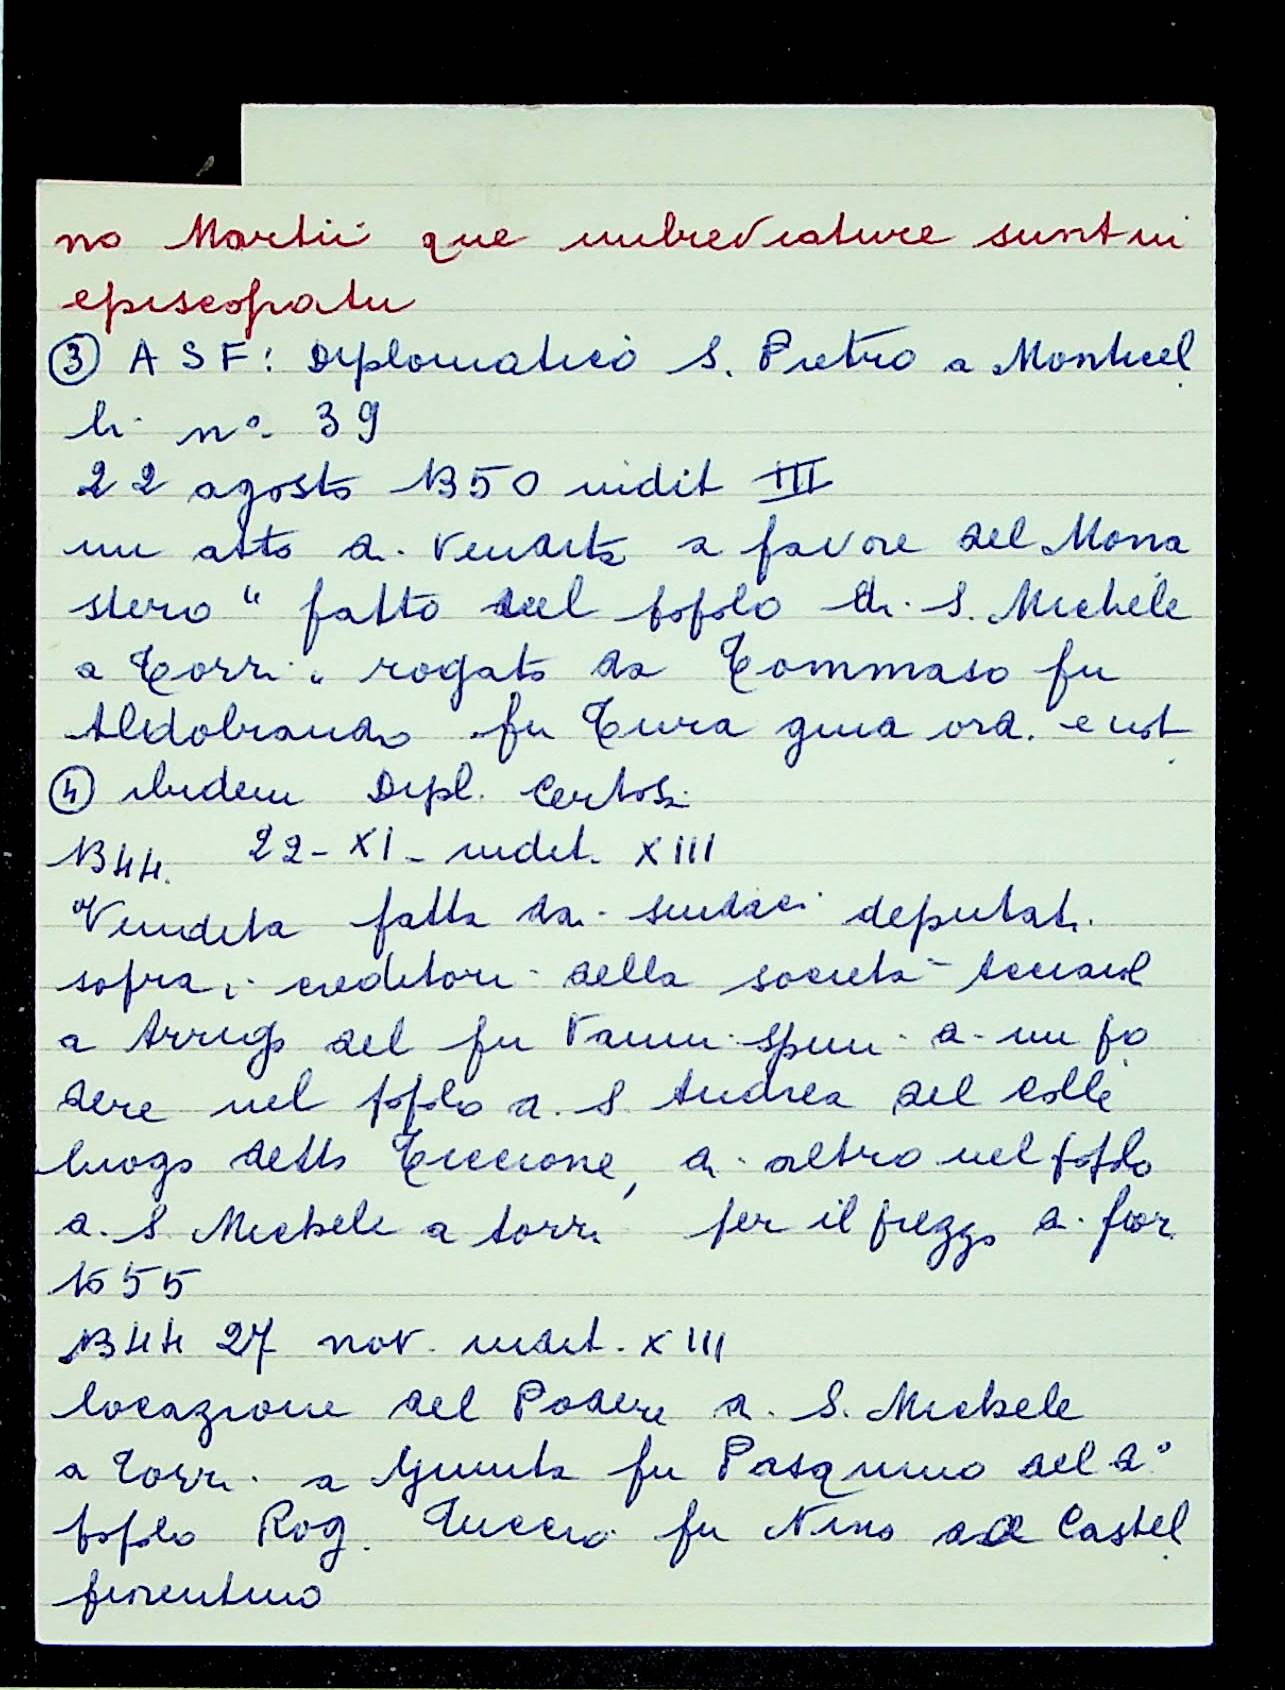 no Martii que imbreviature sunt in
episcopatu
③ ASF: Diplomatico S. Pietro a Monticel
li n° 39
22 agosto 1350 indit III
un atto di vendita a favore del Mona
stero " fatto nel popolo di S. Michele
a Torri " rogato da Tommaso fu
Aldobrando fu Tura giud ord. e not
④ ibidem Dipl. Certosi
1344. 22-XI- indit. XIII
Vendita fatta dai sindaci deputati
sopra i creditori della società Acciaiol
a Arrigo del fu Vanni Spini di un po
dere nel popolo di S. Andrea del Colle
luogo detto Ticcione, di altro nel popolo
di S. Michele a torri per il prezzo di fior.
1655
1344 27 nov. indit. XIII
locazione del Podere di S. Michele
a Torri a Giunta fu Pasquino del d°
popolo Rog. Tuccio fu Nino da Castel
fiorentino